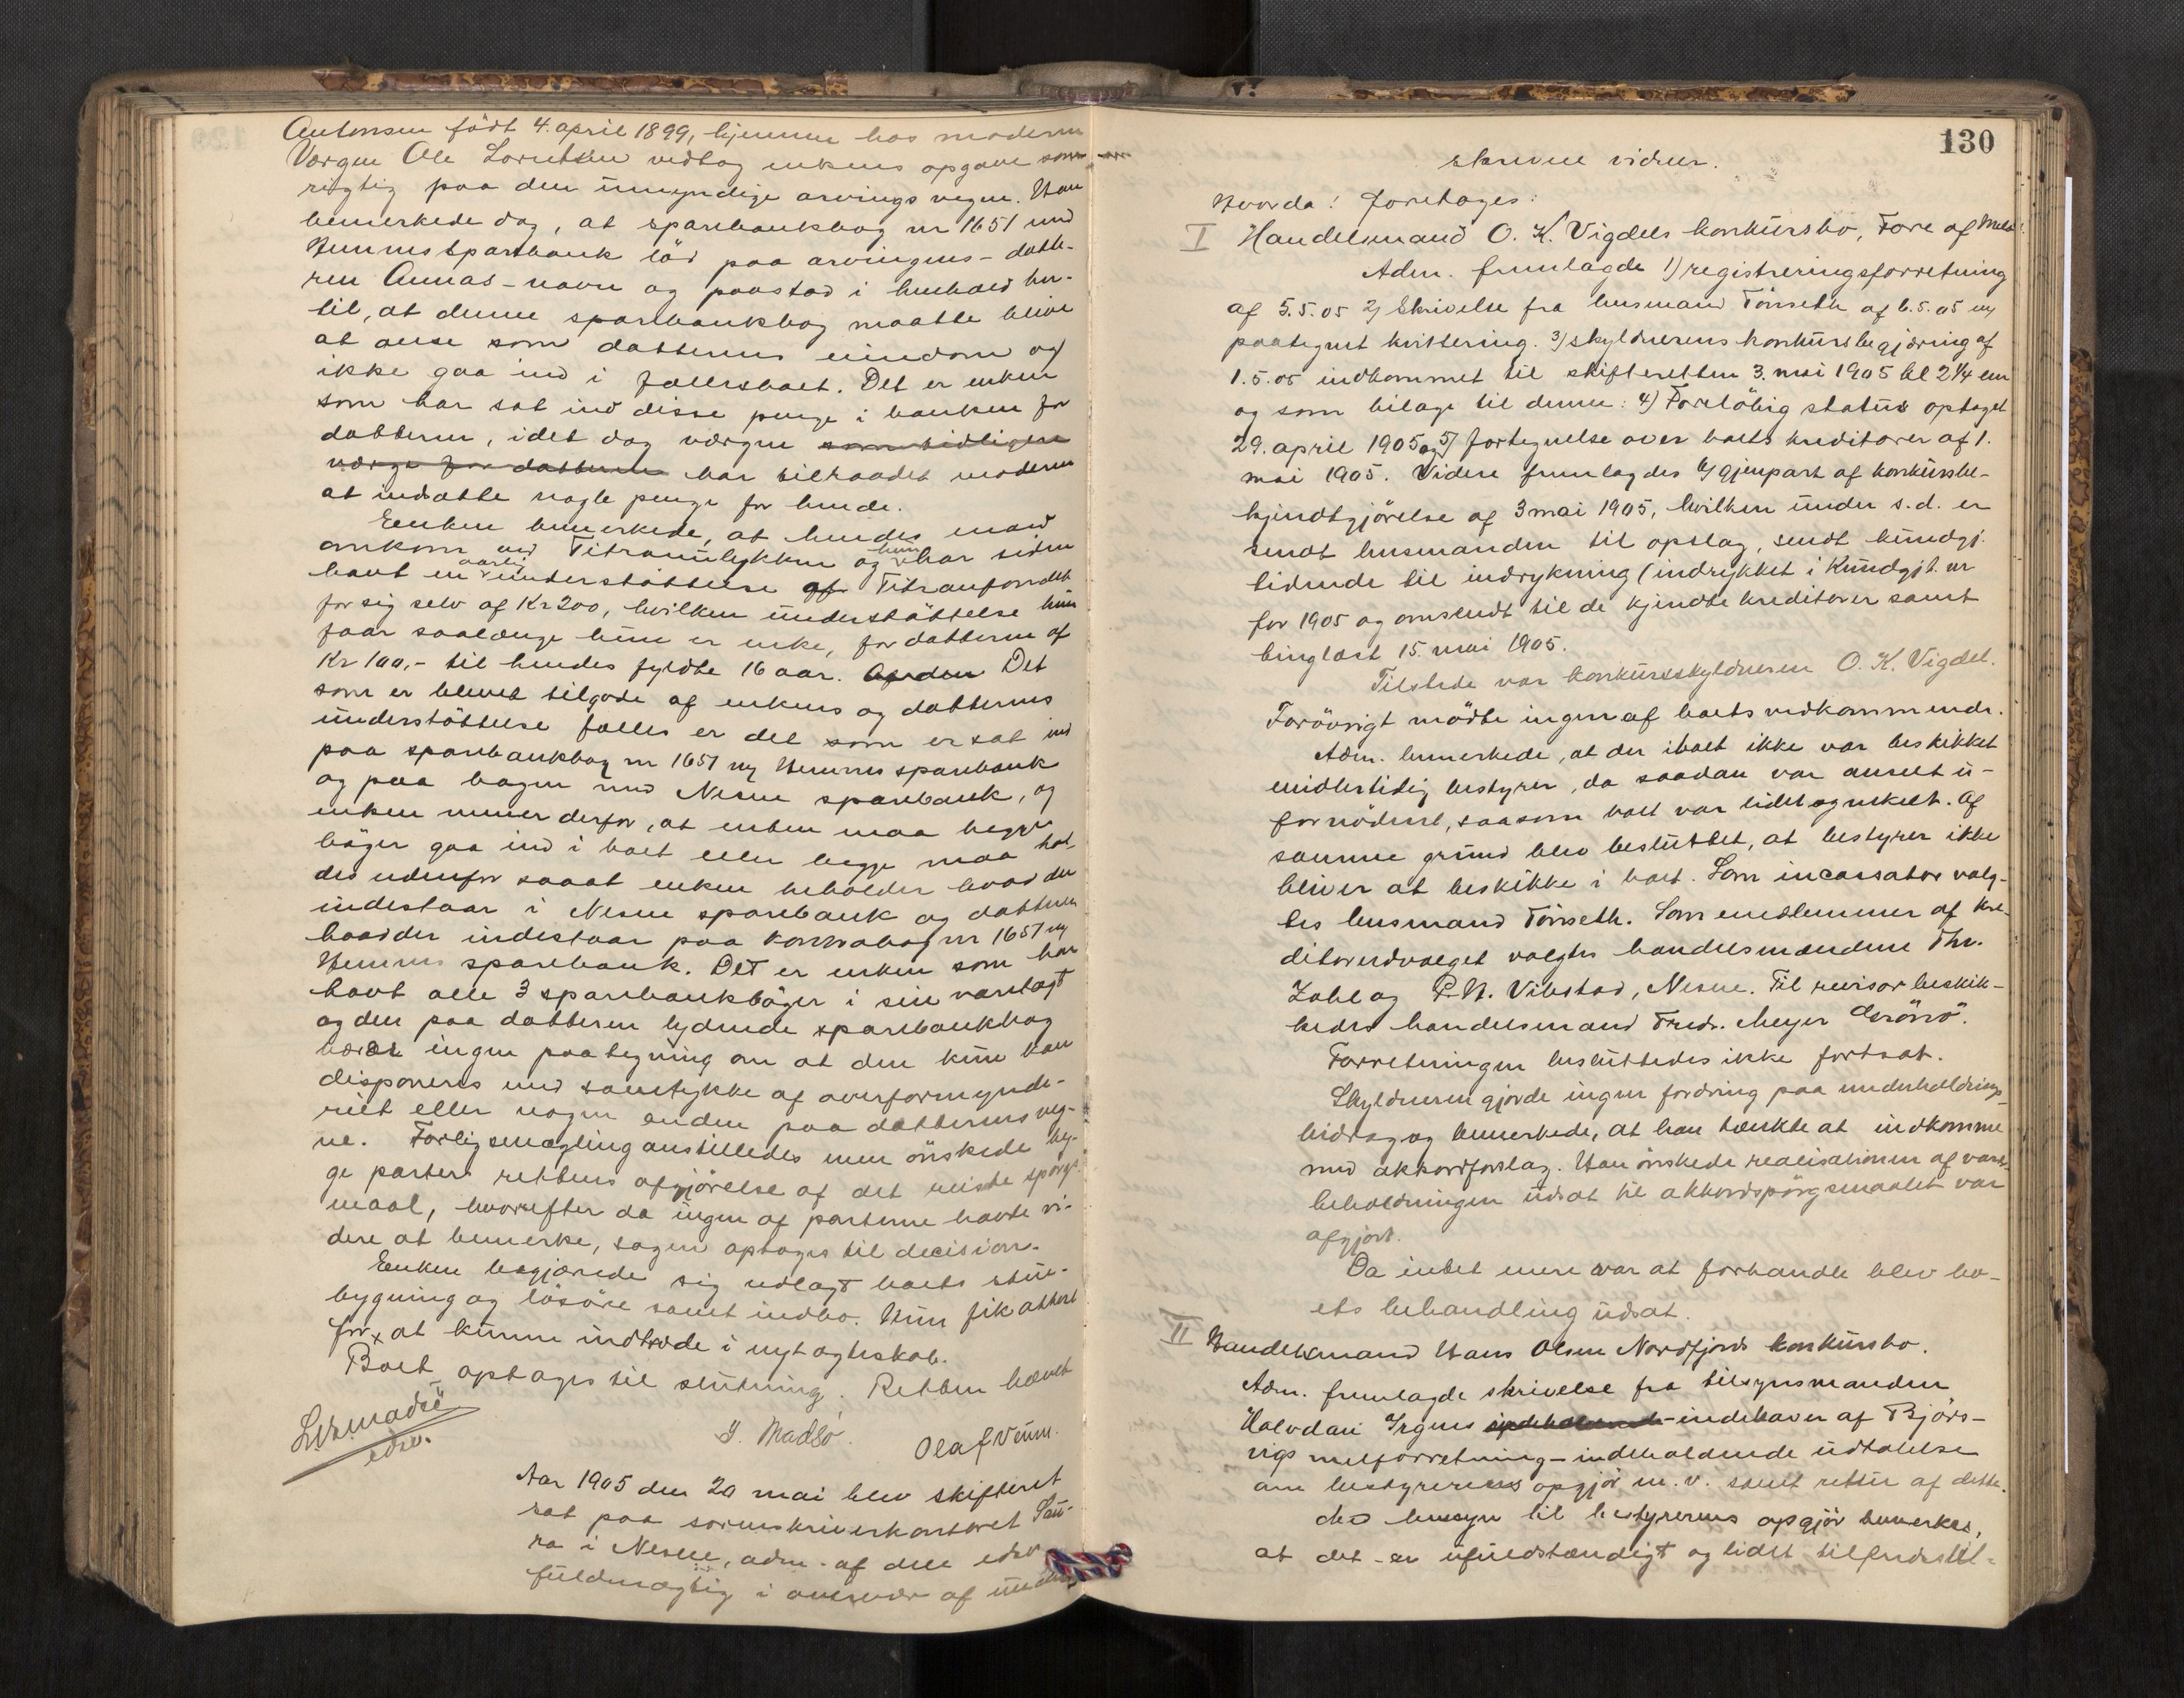 Antonsen födt 4. april 1899, hjemme hos moderen
Værgen Ole Lorntsen vedtog enkens opgave som
rigtig paa den umyndige arvings vegne. Han
bemerkede dog, at sparebankbog nr 1651 med
Hemnes sparebank löd paa arvingens - datte-
ren Annas - navn og paastod i henhold her-
til, at denne sparebankbog maatte blive
at anse som datterens eiendom og
ikke gaa ind i fællesboet. Det er enken
som har sat ind disse penge i banken for
datteren, idet dog værgen som tidligere
værge for datteren har tilraadet moderen
at indsætte nogle penge for hende.
Enken bemerkede, at hendes mand
omkom ved Titranulykken og hun har siden
havt en aarlig understöttelse af Titranfondet
for sig selv af Kr 200, hvilken understöttelse hun
faar saalænge hun er enke, for datteren af
Kr 100,- til hendes fyldte 16 aar. Af den Det
som er blevet tilgode af enkens og datterens
understöttelse fælles er det som er sat ind
paa sparebankbog nr 1651 ved Hemnes sparebank
og paa bogen med Nesne sparebank, og
enken mener derfor, at enten maa begge
böger gaa ind i boet eller begge maa hol-
des udenfor saaat enken beholder hvad der
indestaar i Nesne sparebank og datteren
hvad der indestaar paa kontrabog nr 1651 ved
Hemnes sparebank. Det er enken som har
havt alle 3 sparebankböger i sin varetægt
og den paa datteren lydende sparebankbog
bærer ingen paategning om at den kun kan
disponeres med samtykke af overformynde-
riet eller nogen anden paa datterens veg-
ne. Forligsmægling anstilledes men önskede beg-
ge parter rettens afgjörelse af det reiste spörgs-
maal, hvorefter da ingen af parterne havde vi-
dere at bemerke, sagen optoges til decision.
Enken begjærede sig udlagt boets stue-
bygning og lösöre samt indbo. Hun fik attest
for at kunne indtræde i nyt ægteskab.
Boet optages til slutning. Retten hævet
J. Madsö. Olaf Veum.
Aar 1905 den 20 mai blev skifteret
sat paa sorenskriverkontoret San-
ra i Nesne, adm. af den edsv.
fuldmægtig i overvær af under
130
skrevne vidner.
Hvorda! Foretages:
I Handelsmand O. K. Vigdels konkursbo, Fore af Melö.
Adm. fremlagde 1) registreringsforretning
af 5.5.05 2) Skrivelse fra lensmand Tönseth af 6.5.05 med
paategnet kvittering. 3) skyldnerens konkursbegjæring af
1.5.05 indkommet til skifteretten 3. mai 1905 kl 2 1/4 em
og som bilage til denne: 4) Foreløbig status optaget
29. april 1905 og 5) fortegnelse over boets kreditorer af 1.
mai 1905. Videre fremlagdes 6) gjenpart af konkursbe-
kjendtgjörelse af 3 mai 1905, hvilken under s.d. er
sendt lensmanden til opslag, sendt kundgj.
tidende til indrykning (indrykket i Kundgjt. nr
for 1905 og omsendt til de kjendte kreditorer samt
tinglæst 15. mai 1905.
Tilstede var konkursskyldneren O. K. Vigdel.
Forövrigt mödte ingen af boets vedkommende.
Adm. bemerkede, at der i boet ikke var beskikket
midlertidig bestyrer, da saadan var anseet u-
fornödent, saasom boet var lidet og enkelt. Af
samme grund blev besluttet, at bestyrer ikke
bliver at beskikke i boet. Som incassator valg-
tes lensmand Tönseth. Som medlemmer af kre-
ditorudvalget valgtes handelsmændene Thr.
Zahl og P. N. Vibstad, Nesne. Til revisor beskik-
kedes handelsmand Fredr. Meyer Grönö.
Forretningen besluttedes ikke fortsat.
Skyldneren gjorde ingen fordring paa underholdnings-
bidrag og bemerkede, at han tænkte at indkomme
med akkordforslag. Han önskede realisationen af vare-
beholdningen udsat til akkordspörgsmaalet var
afgjort.
Da intet mere var at forhandle blev bo-
ets behandling udsat.
II Handelsmand Hans Olsen Nordfjords konkursbo.
Adm. fremlagde skrivelse fra tilsynsmanden
Halvdan Irgens - indehaver af Björs-
vigs melforretning - indeholdende udtalelse
om bestyrerens opgjör m. v. samt retur af dette.
Med hensyn til bestyrerens opgjör bemerkes,
at det er ufuldstændigt og lidet tilfredsstil-